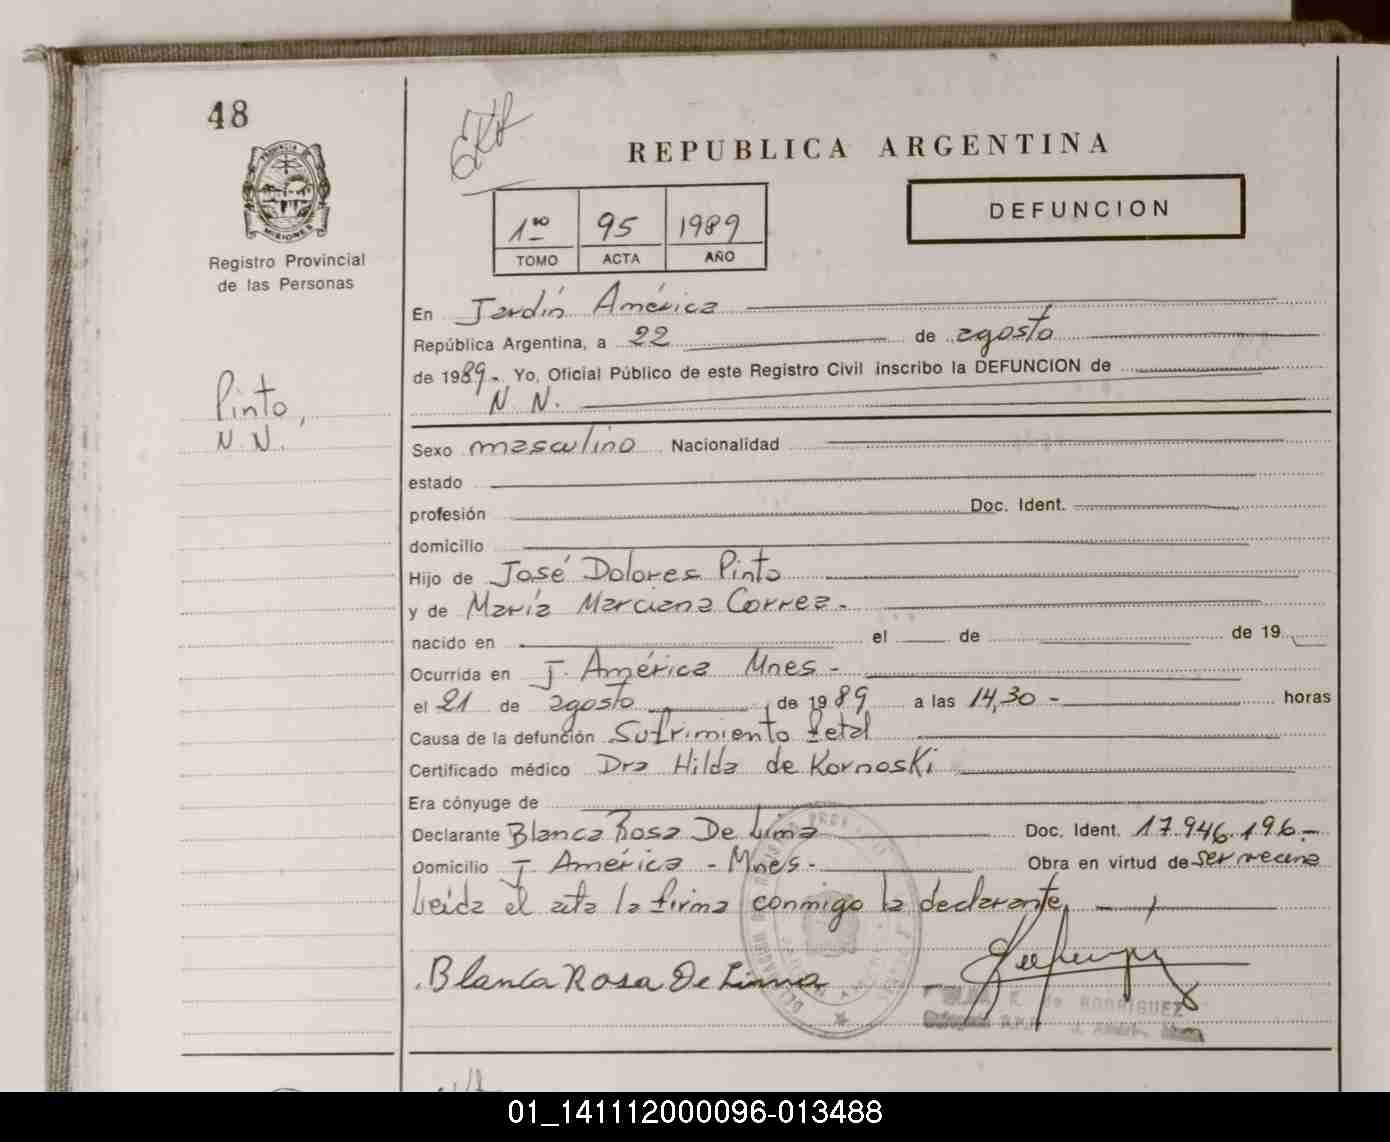 48
REPUBLICA ARGENTINA
DEFUNCION
1ro 95 1989
TOMO ACTA AÑO
PROVINCIA
MISIONES
Registro Provincial
de las Personas
Pinto,
N.N.
En Jardín América
República Argentina, a 22 de agosto
de 1989-. Yo, Oficial Público de este Registro Civil inscribo la DEFUNCION de
N. N.
Sexo masculino Nacionalidad
estado
profesión Doc. Ident.
domicilio
Hijo de José Dolores Pinto
y de María Marciana Correa-
nacido en el de de 19
Ocurrida en J. América Mnes-
el 21 de agosto de 1989 a las 14,30 - horas
Causa de la defunción Sufrimiento fetal
Certificado médico Dra Hilda de Kornoski
Era cónyuge de
Declarante Blanca Rosa De Lima Doc. Ident. 17.946.196.-
Domicilio J. América - Mnes- Obra en virtud de ser vecina
Leída el acta la firma conmigo la declarante.
Blanca Rosa De Lima
de RODRIGUEZ
01_141112000096-013488